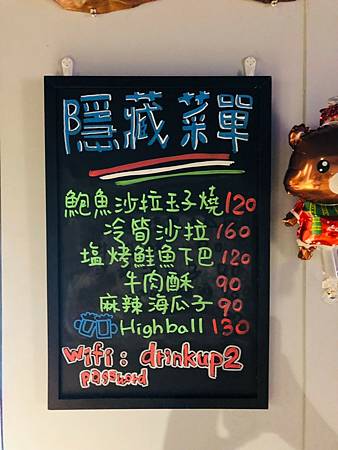 隱藏菜單
鮑魚沙拉玉子燒 120
冷筍沙拉 160
塩烤鮭魚下巴 120
牛肉酥 90
麻辣海瓜子 90
Highball 130
Wifi : drinkup2
password